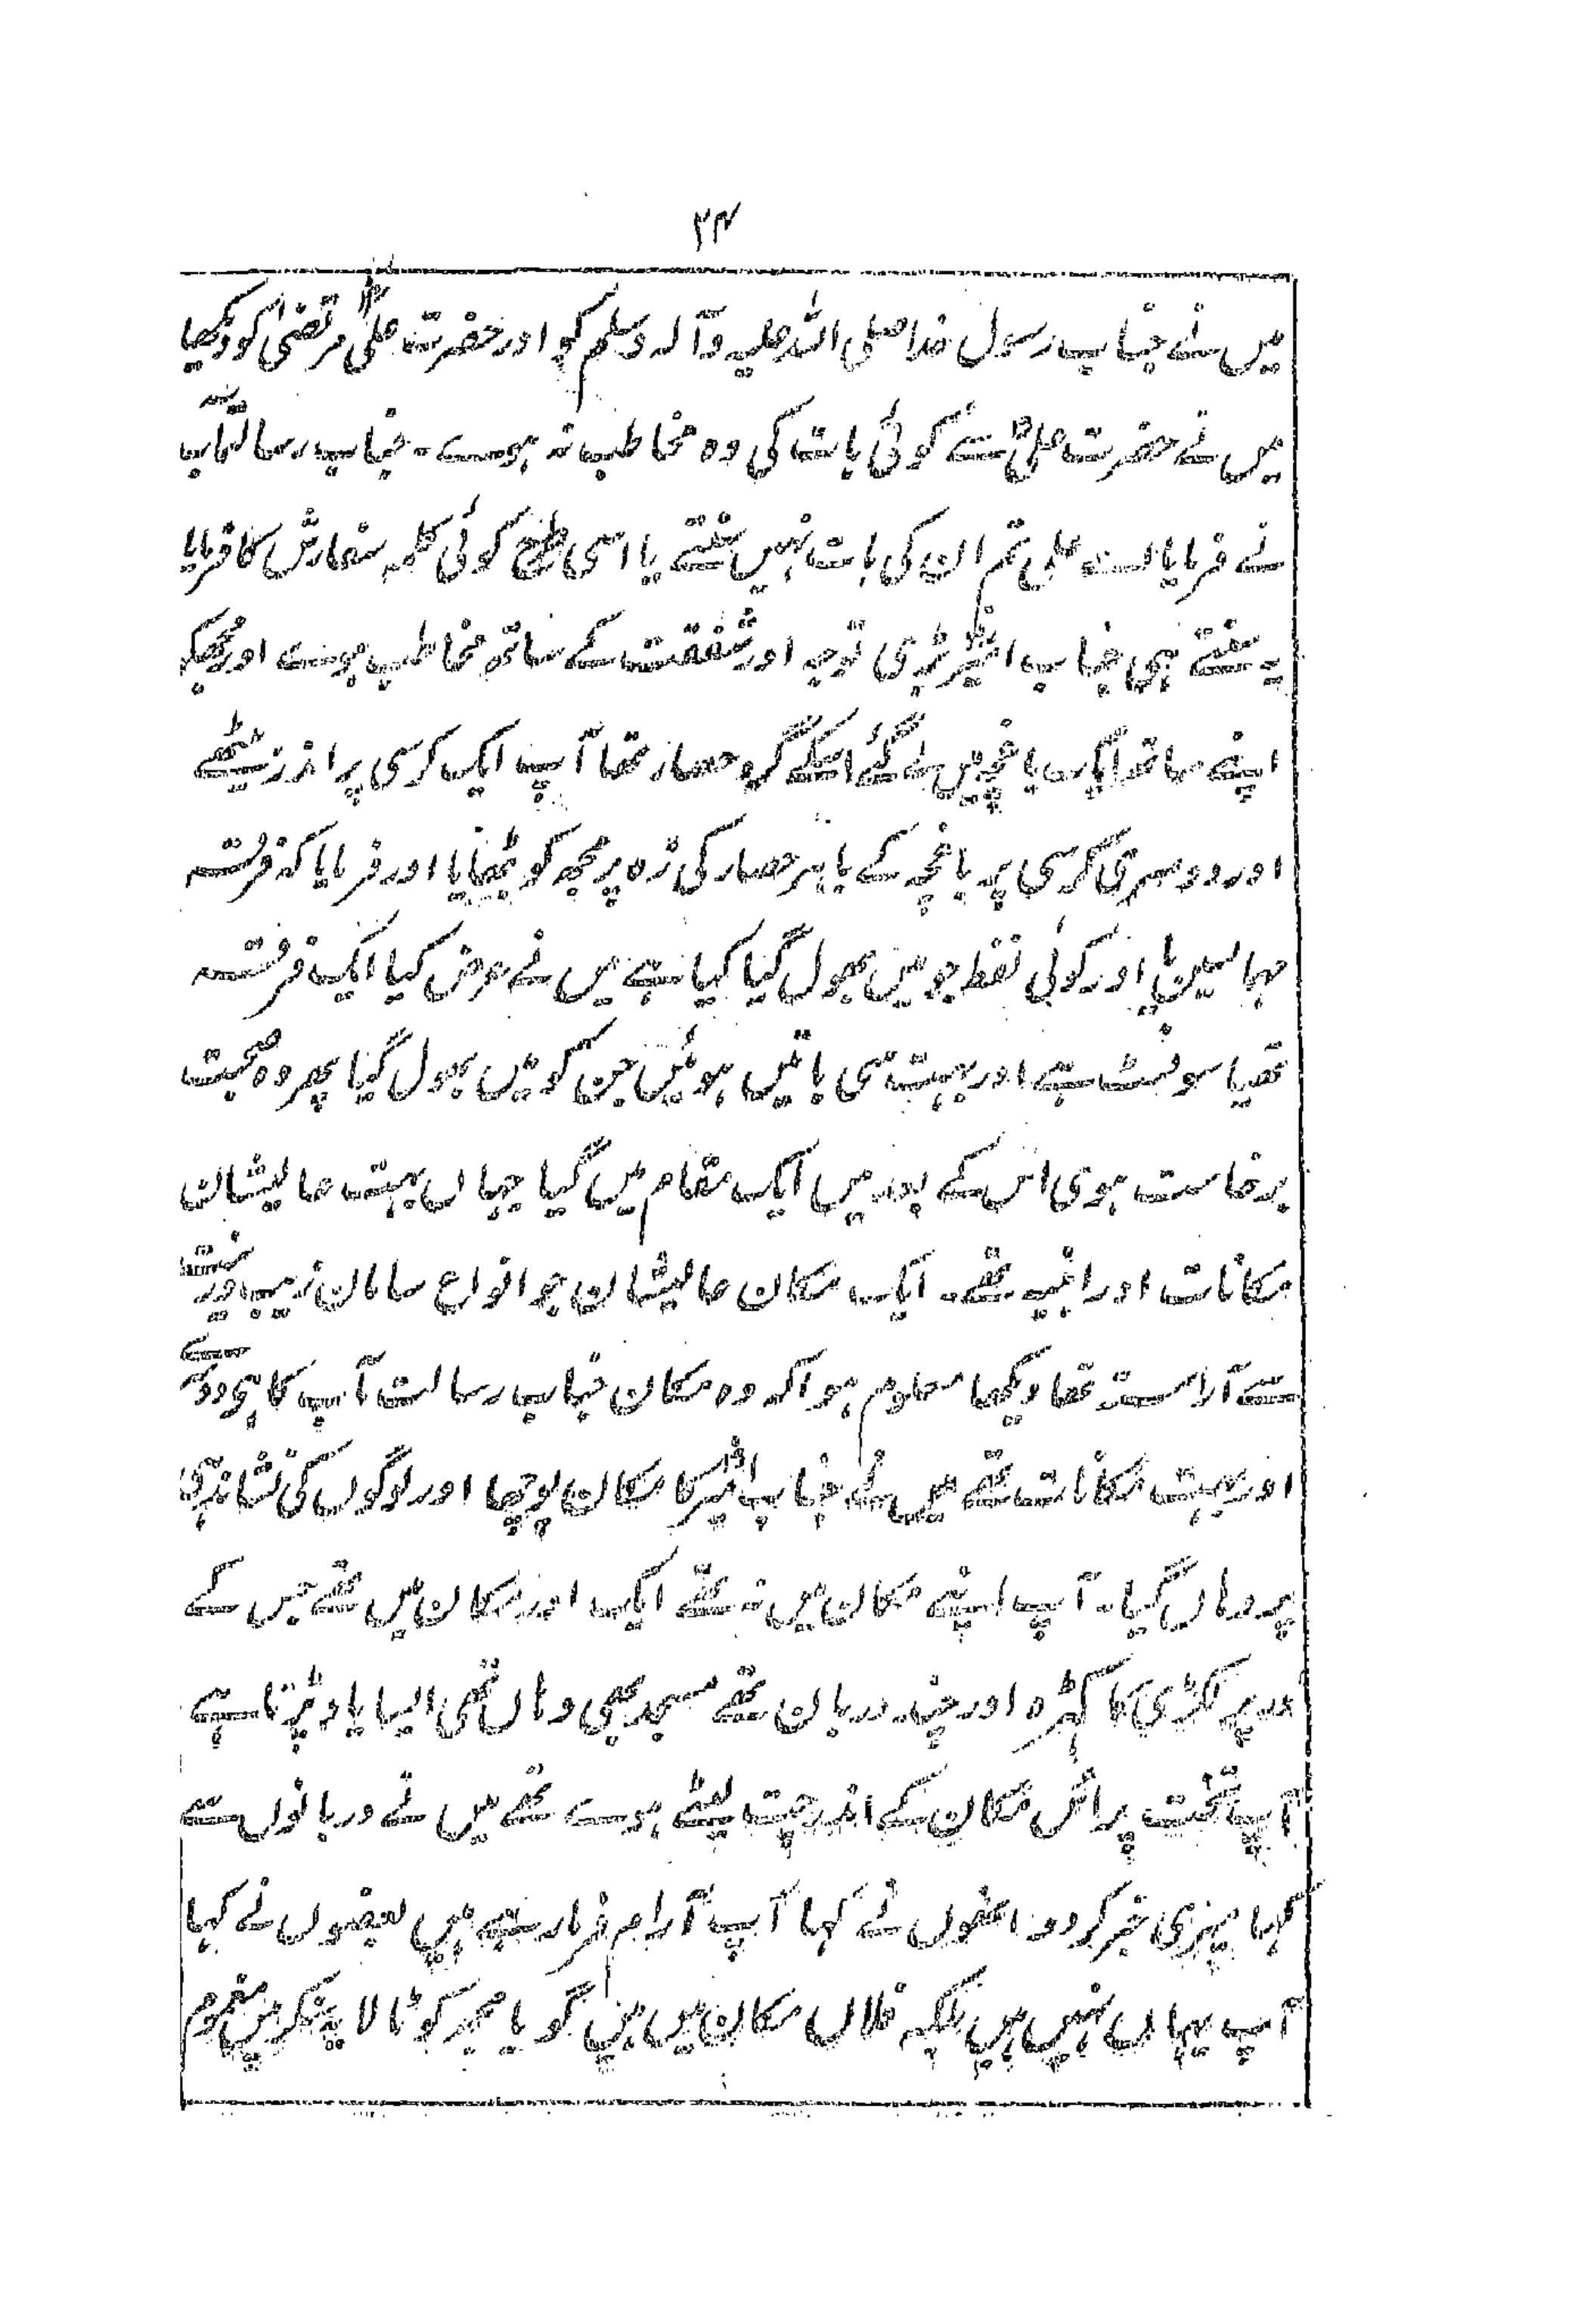 ۳۴
میں نے جناب رسول خدا صلی اللہ علیہ وآلہ وسلم کو اور حضرت علی مرتضیٰ کو دیکھا
میں نے حضرت علیؑ سے کوئی بات کی وہ مخاطب نہ ہوے۔ جناب رسالتمآب
نے فرمایا اے علی تم ان کی بات نہیں سنتے یا اسی طرح کوئی کلمہ سفارش کا فرمایا
یہ سنتے ہی جناب امیرؑ بڑی توجہ اور شفقت کے ساتھ مخاطب ہوے اور مجھکو
اپنے ساتھ ایک باغچہ میں لے گئے اسکے گرد حصار تھا آپ ایک کرسی پر اندر بیٹھے
اور دوسری کرسی پر باغچہ کے باہر حصار کی زہ پر مجھ کو بٹھایا اور فرمایا کہ فرقتہ
یا اور کوئی لفظ جو میں بھول گیا کیا ہے میں نے عرض کیا ایک فرقتہ
سوفسٹ ہے اور بہت سی باتیں ہوئیں جن کو میں بھول گیا پھر وہ صحبت
برخاست ہوی اس کے بعد میں ایک مقام میں گیا جہاں بہت عالیشان
مکانات اور ابنیہ تھے۔ ایک مکان عالیشان جو انواع سامان زیب وزینت
سے آراستہ تھا دیکھا معلوم ہوا کہ وہ مکان جناب رسالت مآب کا ہی دوسرے
اور بہت مکانات تھے میں نے جناب امیرؑ کا مکان پوچھا اور لوگوں کی نشاندہی
پر وہاں گیا۔ آپ اپنے مکان میں نہ تھے ایک اور مکان میں تھے جس کے
در پر لکڑی کا کٹہرہ اور چند دربان تھے مسجد بھی وہاں تھی ایسا یاد پڑتا ہے
آپ تخت پر اس مکان کے اندر چت لیٹے ہوے تھے میں نے دربانوں سے
کہا میری خبر کردو انھوں نے کہا آپ آرام فرما رہے ہیں بعضوں نے کہا
آپ یہاں نہیں ہیں بلکہ فلاں مکان میں ہیں گویا مجھ کو ٹالا یہ سنکر میں مغموم